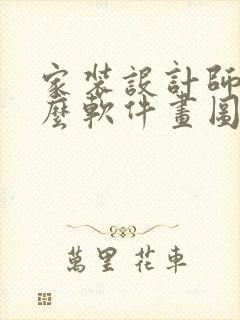 家装設計師
麼軟件畫圖
萬里花車